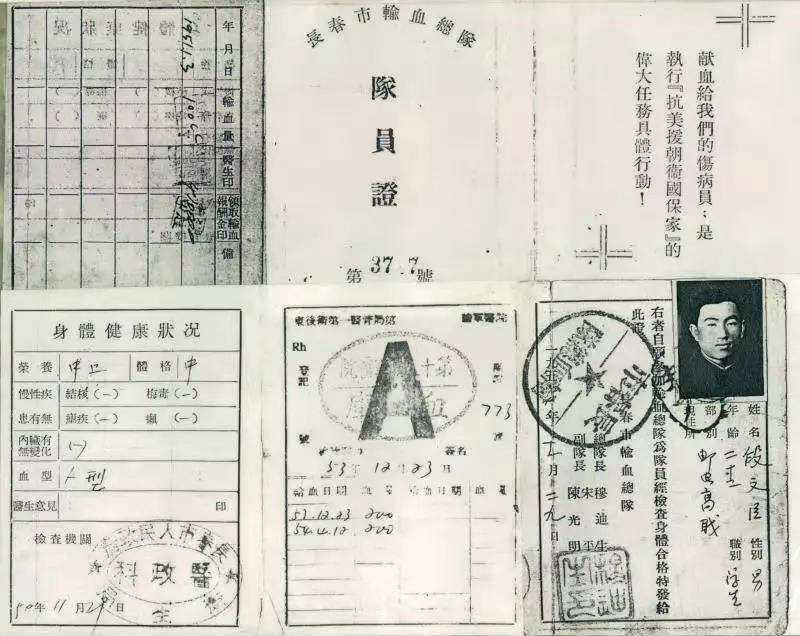 長春市輸血總隊
隊員證
第 37 7 號
献血給我們的傷病員；是
執行『抗美援朝衛國保家』的
偉大任務具體行動！
年月日
輸血量
醫生印
領取輸血
報酬金印
備
1951.1.3
身體健康狀况
榮養
體格 中
慢性疾 結核(一) 梅毒(一)
患有無 瘧疾(一) 癩(一)
內臟有
無變化 (一)
血型 A型
醫生意見 印
檢查機關
長春市人民政府
醫政科
50年11月29日
Rh
登記
號
A
773
簽名
53年12月23日
給血日期 血量 給血日期 血量
53.12.23 200
54.4.12 200
姓名 段文臣 性別 男
年齡 二十二 職別 学生
部別 邮电高職
現住所
右者自願參加輸血總隊為隊員經檢查身體合格特發給
此證
長春市輸血總隊
總隊長 穆迪生
副隊長 宋平
陳光明
一九五〇年十一月二九日